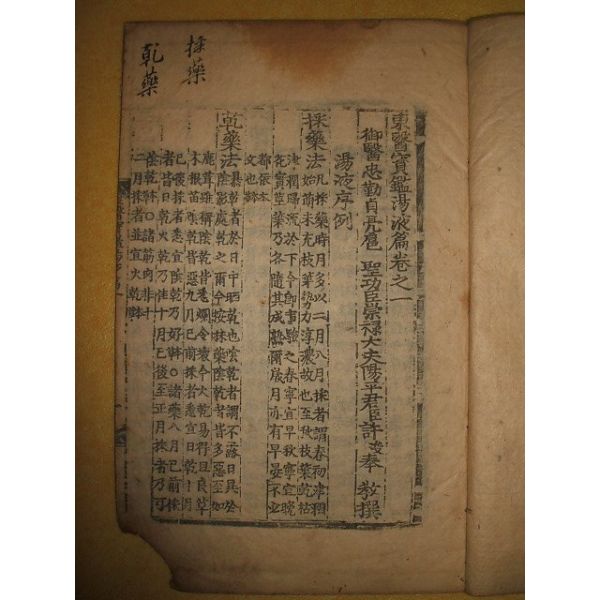 東醫寶鑑湯液篇卷之一
御醫忠勤貞亮扈 聖功臣崇祿大夫陽平君臣許浚奉 敎撰
湯液序例
採藥法凡採藥時月多以二月八月採者謂春初津潤
始萌未充枝葉勢力淳濃故也至秋枝葉乾枯
津潤歸流於下今卽事驗之春寧宜早秋寧宜晚
花實莖葉乃各隨其成熟爾歲月亦有早晏不必
都依本
文也
乾藥法暴乾者於日中晒乾也陰乾者謂不露日暴於
陰影處乾之爾今按採藥陰乾者皆多惡至如
鹿茸雖稱陰乾皆悉爛令壞今火乾易得且良草
木根苗陰乾皆惡九月已前採者悉宜日乾十月
已後採者悉宜陰乾乃好 諸藥八月已前採
者皆日乾火乾乃佳十月已後至正月採者乃可
陰乾 諸筋肉非十
二月採者並宜火乾
採藥
乾藥